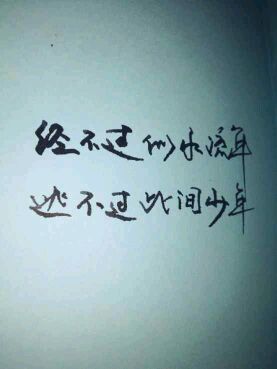 经不过似水流年
逃不过此间少年